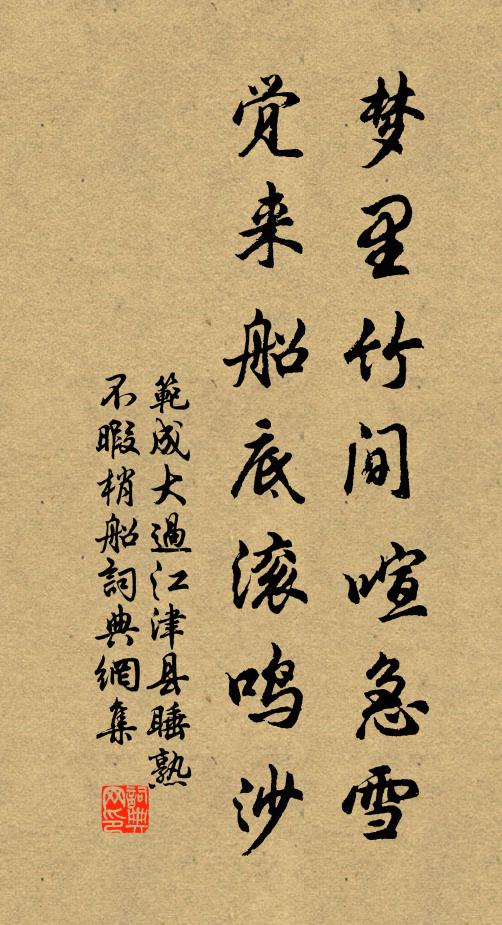 梦里竹间喧急雪
觉来船底滚鸣沙
範成大過江津县睡熟
不暇梢船詞典網集
詞典
网印